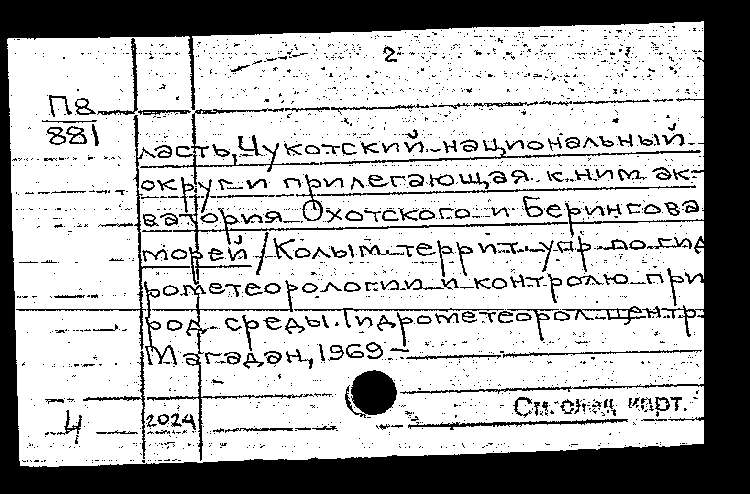 2
П8
881
ласть, Чукотский национальный
округ и прилегающая к ним ак-
ватория Охотского и Берингова
морей / Колым. террит. упр. по гид
рометеорологии и контролю при
род. среды. Гидрометеорол. центр.
Магадан, 1969 –
4
2024
См. след. карт.